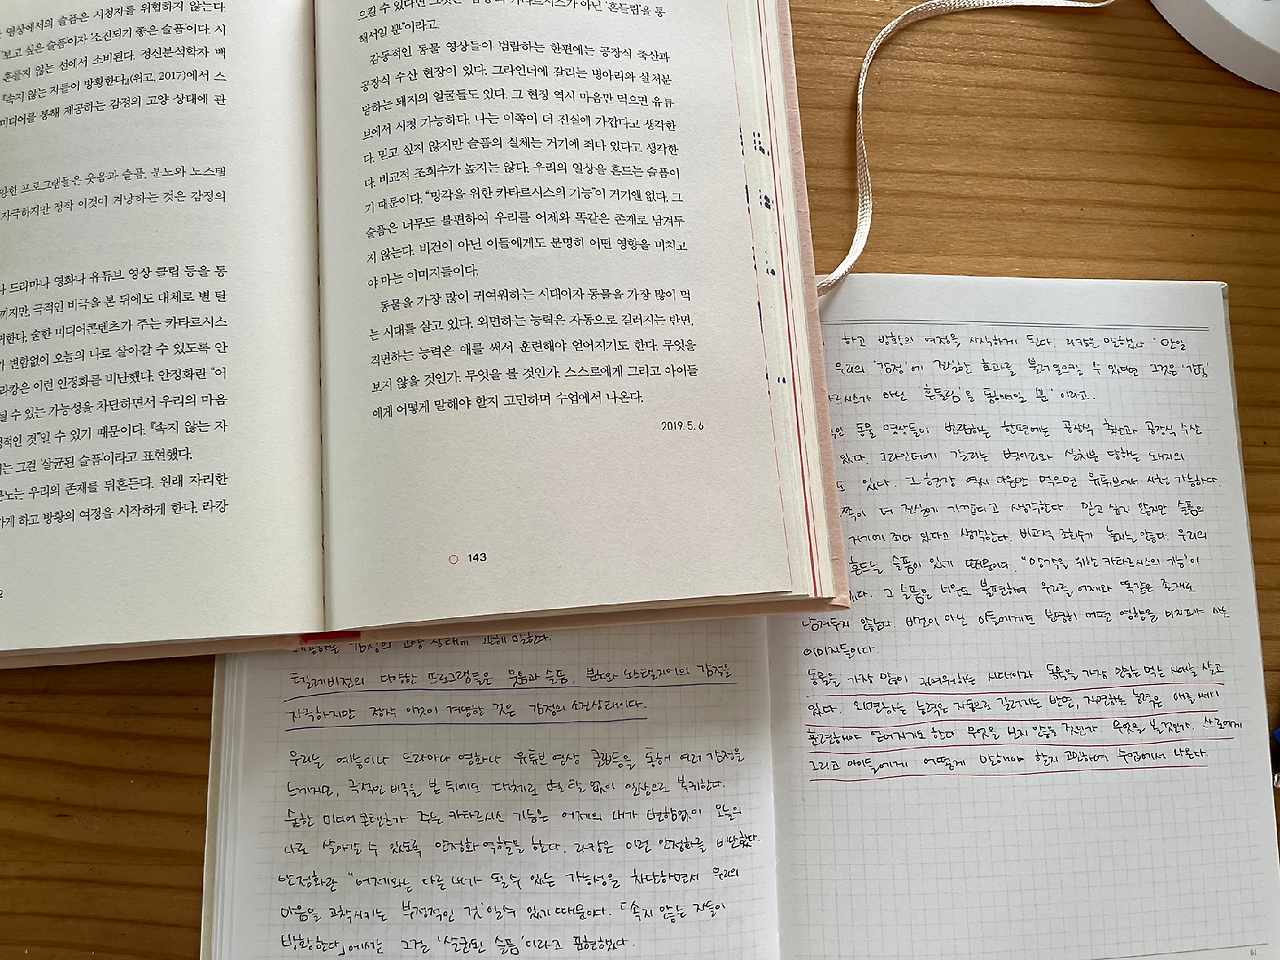 영상에서의 슬픔은 시청자를 위협하지 않는다.
'보고 싶은 슬픔'이자 '소진되기 좋은 슬픔'이다. 시
흔들지 않는 선에서 소비된다. 정신분석학자 백
『속지 않는 자들이 방황한다』(위고, 2017)에서 스
미디어를 통해 제공하는 감정의 고양 상태에 관
양한 프로그램들은 웃음과 슬픔, 분노와 노스탤
자극하지만 정작 이것이 겨냥하는 것은 감정의
나 드라마나 영화나 유튜브 영상 클립 등을 통
끼지만, 극적인 비극을 본 뒤에도 대체로 별 탈
귀한다. 숱한 미디어콘텐츠가 주는 카타르시스
가 변함없이 오늘의 나로 살아갈 수 있도록 안
라캉은 이런 안정화를 비난했다. 안정화란 "어
될 수 있는 가능성을 차단하면서 우리의 마음
정적인 것"일 수 있기 때문이다. 『속지 않는 자
는 그걸 '살균된 슬픔'이라고 표현했다.
분노는 우리의 존재를 뒤흔든다. 원래 자리한
가게 하고 방황의 여정을 시작하게 한다. 라캉
으킬 수 있다면 그것은 카타르시스가 아닌 '흔들림'을 통
해서일 뿐"이라고.
감동적인 동물 영상들이 범람하는 한편에는 공장식 축산과
공장식 수산 현장이 있다. 그라인더에 갈리는 병아리와 살처분
당하는 돼지의 얼굴들도 있다. 그 현장 역시 마음만 먹으면 유튜
브에서 시청 가능하다. 나는 이쪽이 더 진실에 가깝다고 생각한
다. 믿고 싶지 않지만 슬픔의 실체는 거기에 죄다 있다고 생각한
다. 비교적 조회수가 높지는 않다. 우리의 일상을 흔드는 슬픔이
기 때문이다. "망각을 위한 카타르시스의 기능"이 거기엔 없다. 그
슬픔은 너무도 불편하여 우리를 어제와 똑같은 존재로 남겨두
지 않는다. 비건이 아닌 이들에게도 분명히 어떤 영향을 미치고
야 마는 이미지들이다.
동물을 가장 많이 귀여워하는 시대이자 동물을 가장 많이 먹
는 시대를 살고 있다. 외면하는 능력은 자동으로 길러지는 반면,
직면하는 능력은 애를 써서 훈련해야 얻어지기도 한다. 무엇을
보지 않을 것인가. 무엇을 볼 것인가. 스스로에게 그리고 아이들
에게 어떻게 말해야 할지 고민하며 수업에서 나온다.
2019.5.6
143
제공하는 감정의 고양 상태에 관해 말한다.
텔레비전의 다양한 프로그램들은 웃음과 슬픔, 분노와 노스탤지어의 감정을
자극하지만 정작 이것이 겨냥한 것은 감정의 소진상태이다.
우리는 예능이나 드라마나 영화나 유튜브 영상 클립등을 통해 여러 감정을
느끼지만, 극적인 비극을 본 뒤에도 대체로 별 탈 없이 일상으로 복귀한다.
숱한 미디어콘텐츠가 주는 카타르시스 기능은 어제의 내가 변함없이 오늘의
나로 살아갈 수 있도록 안정화 역할을 한다. 라캉은 이런 안정화를 비난했다.
안정화란 "어제와는 다른 내가 될 수 있는 가능성을 차단하면서 우리의
마음을 고착시키는 부정적인 것"일수 있기 때문이다. 「속지 않는 자들이
방황한다」에서는 그걸 '살균된 슬픔'이라고 표현했다.
하고 방황의 여정을 시작하게 된다. 라캉은 말했다 "만일
우리의 '감정'에 진실한 효과를 불러일으킬 수 있다면 그것은 '감정'
르시스가 아닌 '흔들림'을 통해서일 뿐" 이라고.
적인 동물 영상들이 범람하는 한편에는 공장식 축산과 공장식 수산
있다. 그라인더에 갈리는 병아리와 살처분 당하는 돼지의
도 있다. 그 현장 역시 마음만 먹으면 유튜브에서 시청 가능하다.
쪽이 더 진실에 가깝다고 생각한다. 믿고 싶지 않지만 슬픔은
거기에 죄다 있다고 생각한다. 비교적 조회수가 높지는 않다. 우리의
흔드는 슬픔이 있기 때문이다. "망각을 위한 카타르시스의 기능"이
없다. 그 슬픔은 너무도 불편하여 우리를 어제와 똑같은 존재로
남겨두지 않는다. 비건이 아닌 이들에게도 분명히 어떤 영향을 미치고야 마는
이미지들이다.
동물을 가장 많이 귀여워하는 시대이자 동물을 가장 많이 먹는 시대를 살고
있다. 외면하는 능력은 자동으로 길러지는 반면, 직면하는 능력은 애를 써서
훈련해야 얻어지기도 한다. 무엇을 보지 않을 것인가. 무엇을 볼것인가. 스스로에게
그리고 아이들에게 어떻게 말해야 할지 고민하며 수업에서 나온다.
61